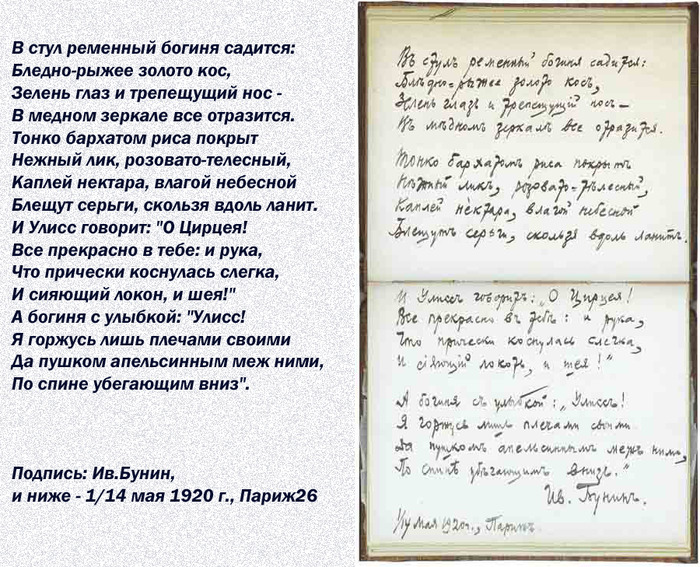 В стул ременный богиня садится:
Бледно-рыжее золото кос,
Зелень глаз и трепещущий нос -
В медном зеркале все отразится.
Тонко бархатом риса покрыт
Нежный лик, розовато-телесный,
Каплей нектара, влагой небесной
Блещут серьги, скользя вдоль ланит.
И Улисс говорит: "О Цирцея!
Все прекрасно в тебе: и рука,
Что прически коснулась слегка,
И сияющий локон, и шея!"
А богиня с улыбкой: "Улисс!
Я горжусь лишь плечами своими
Да пушком апельсинным меж ними,
По спине убегающим вниз".
Подпись: Ив.Бунин,
и ниже - 1/14 мая 1920 г., Париж26
Въ стулъ ременный богиня садится:
Блѣдно-рыжее золото косъ,
Зелень глазъ и трепещущій носъ –
Въ мѣдномъ зеркалѣ все отразится.
Тонко бархатомъ риса покрытъ
Нѣжный ликъ, розовато-тѣлесный,
Каплей нектара, влагой небесной
Блещутъ серьги, скользя вдоль ланитъ.
И Улиссъ говоритъ: „О Цирцея!
Все прекрасно въ тебѣ: и рука,
Что прически коснулась слегка,
И сіяющій локонъ, и шея!"
А богиня съ улыбкой: „Улиссъ!
Я горжусь лишь плечами своими
Да пушкомъ апельсиннымъ межъ ними,
По спинѣ убѣгающимъ внизъ."
Ив. Бунинъ.
1/14 мая 1920 г., Парижъ.